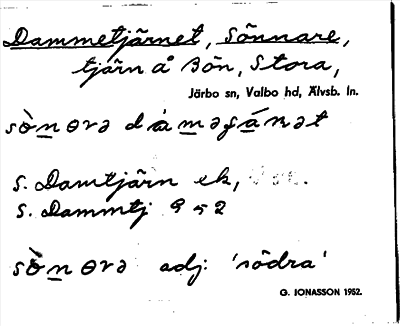 Dammetjärnet, Sönnare,
tjärn å Bön, Stora,
Järbo sn, Valbo hd, Älvsb. ln.
S. Damtjärn ek,
S. Dammtj 9 5 2
adj: 'södra'
G. IONASSON 1952.